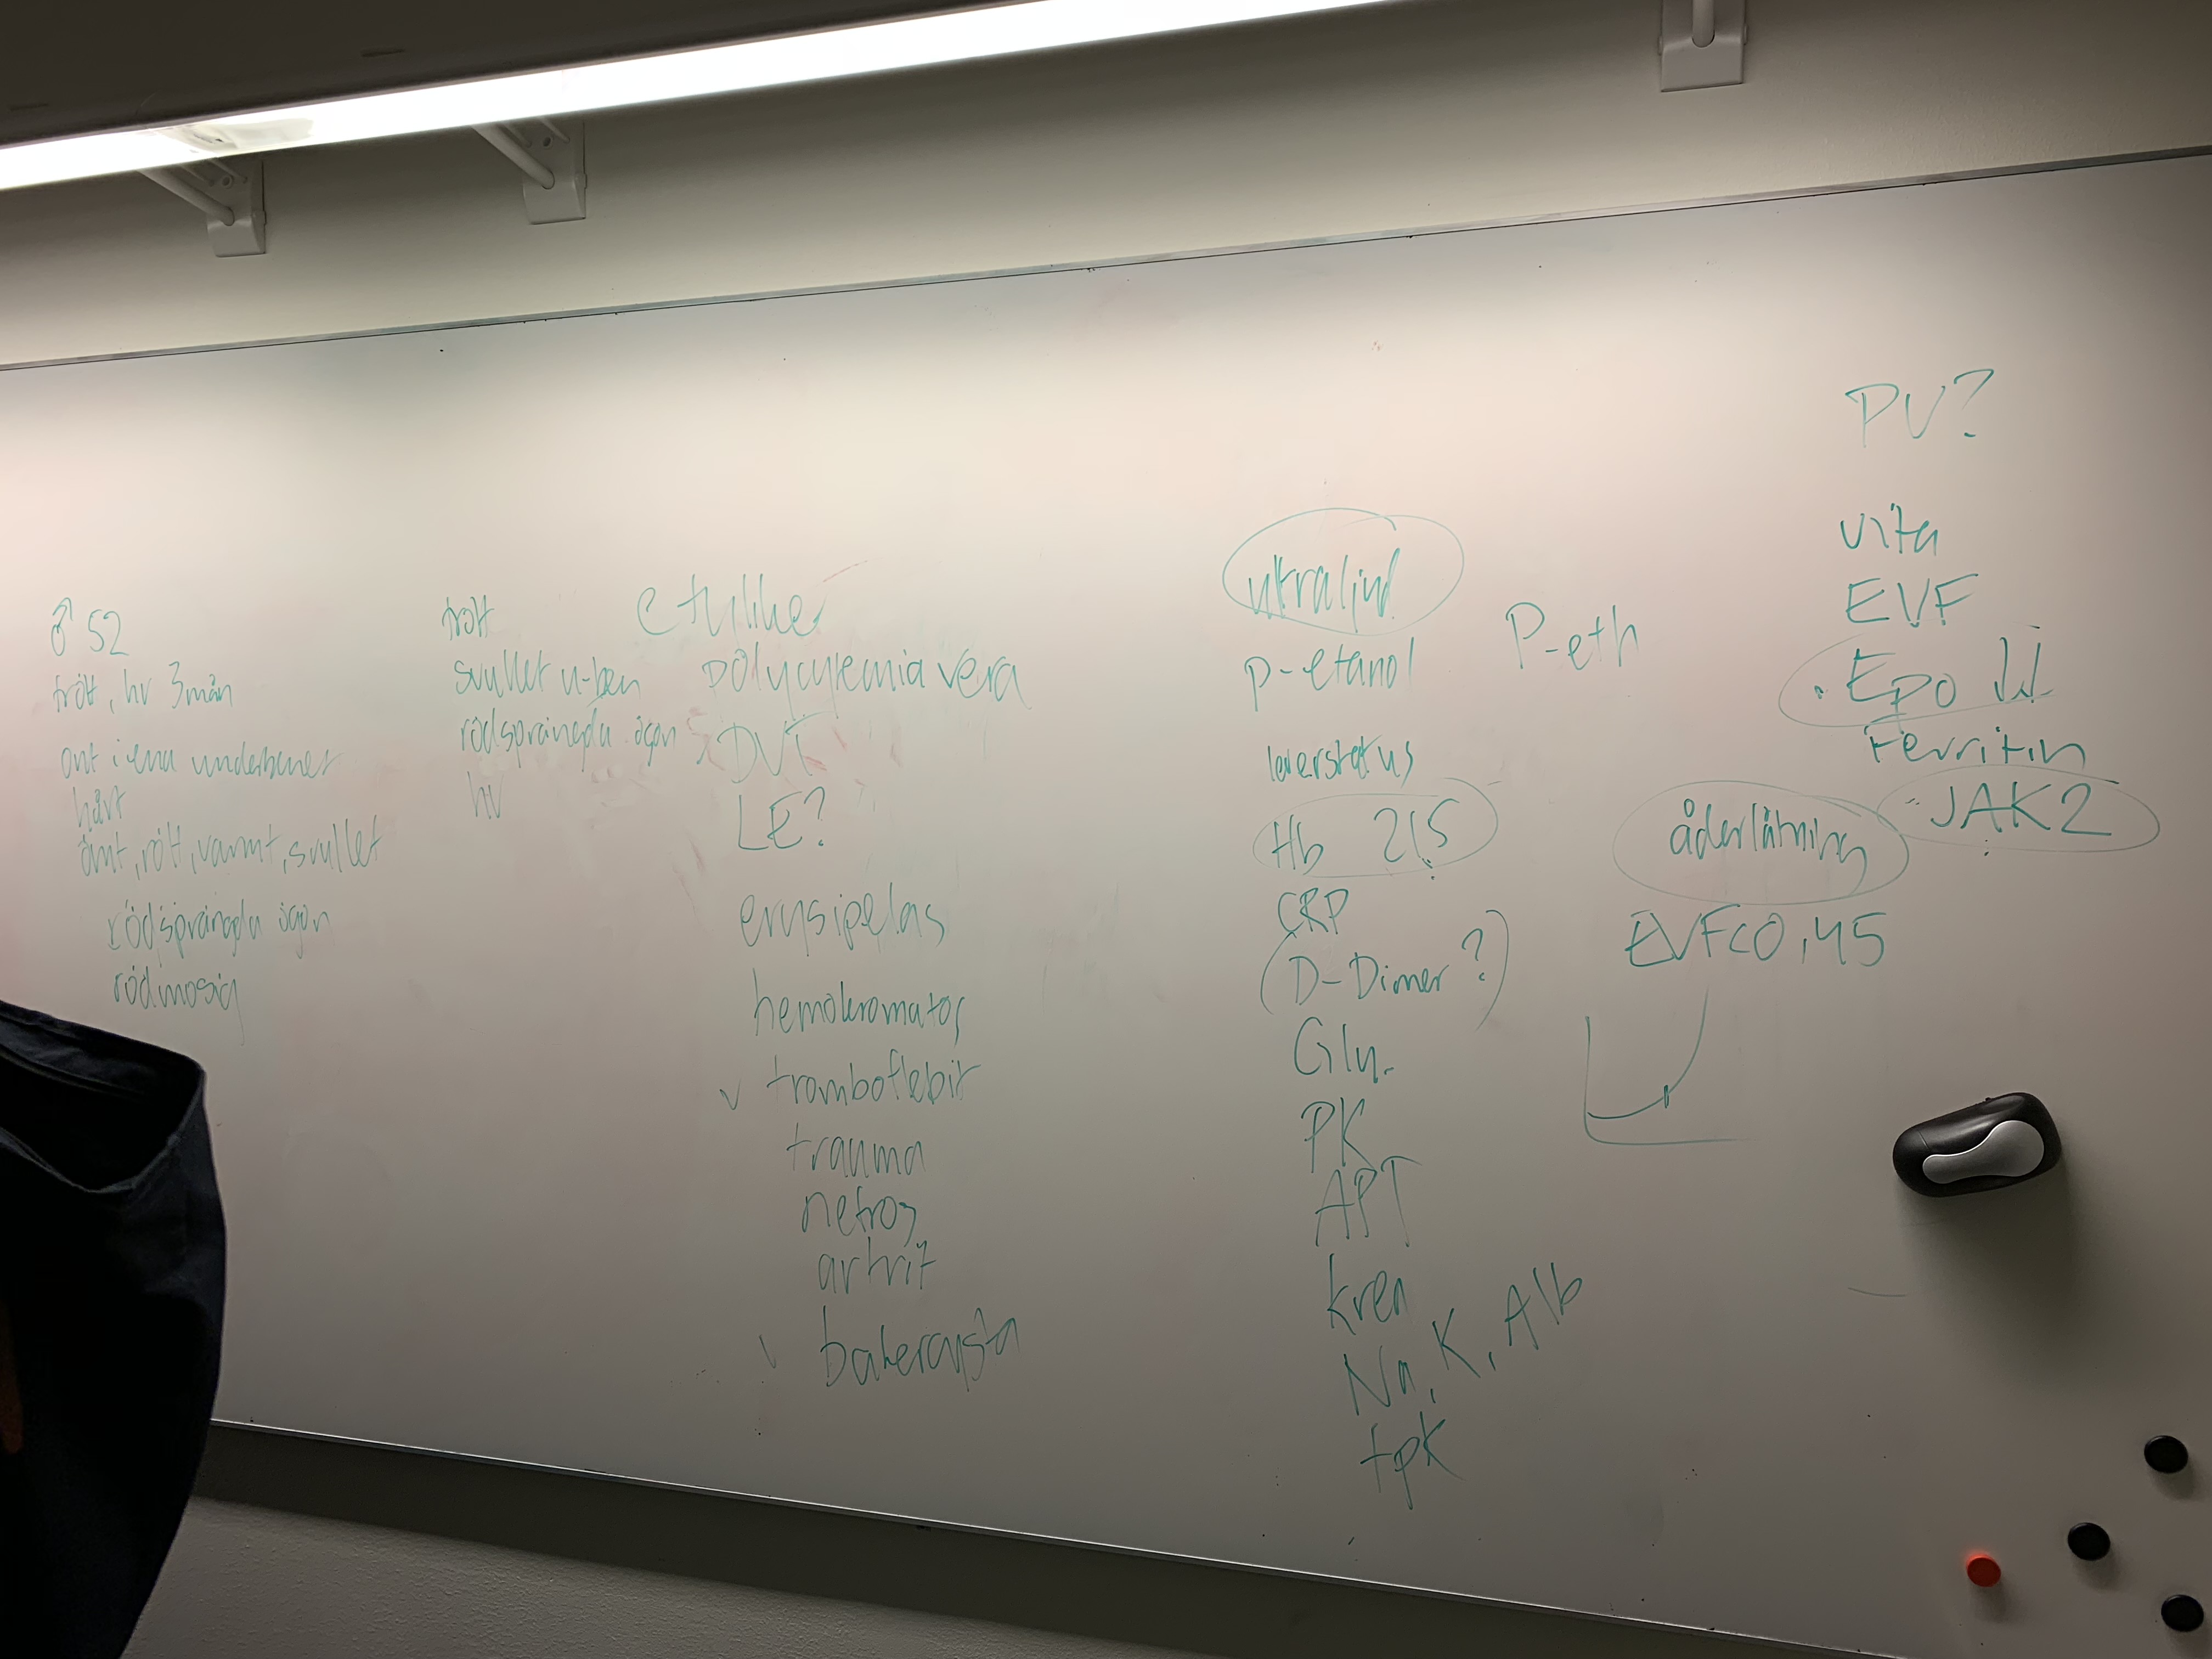 ♂ 52
trött, hv 3 mån
ont i ena underbenet
hårt
ömt, rött, varmt, svullet
rödsprängda ögon
rödmosig
trött
svullet u-ben
rödsprängda ögon
hv
etyliker
polycytemia vera
DVT
LE?
erysipelas
hemokromatos
v tromboflebit
trauma
nefros
artrit
v bakercysta
ultraljud
p-etanol
leverstatus
Hb 215
CRP
(D-Dimer?)
Glu.
PK
APT
krea
Na, K, Alb
tpk
P-eth
åderlåtning
EVF<0,45
PV?
vita
EVF
Epo ↓↓
Ferritin
JAK2